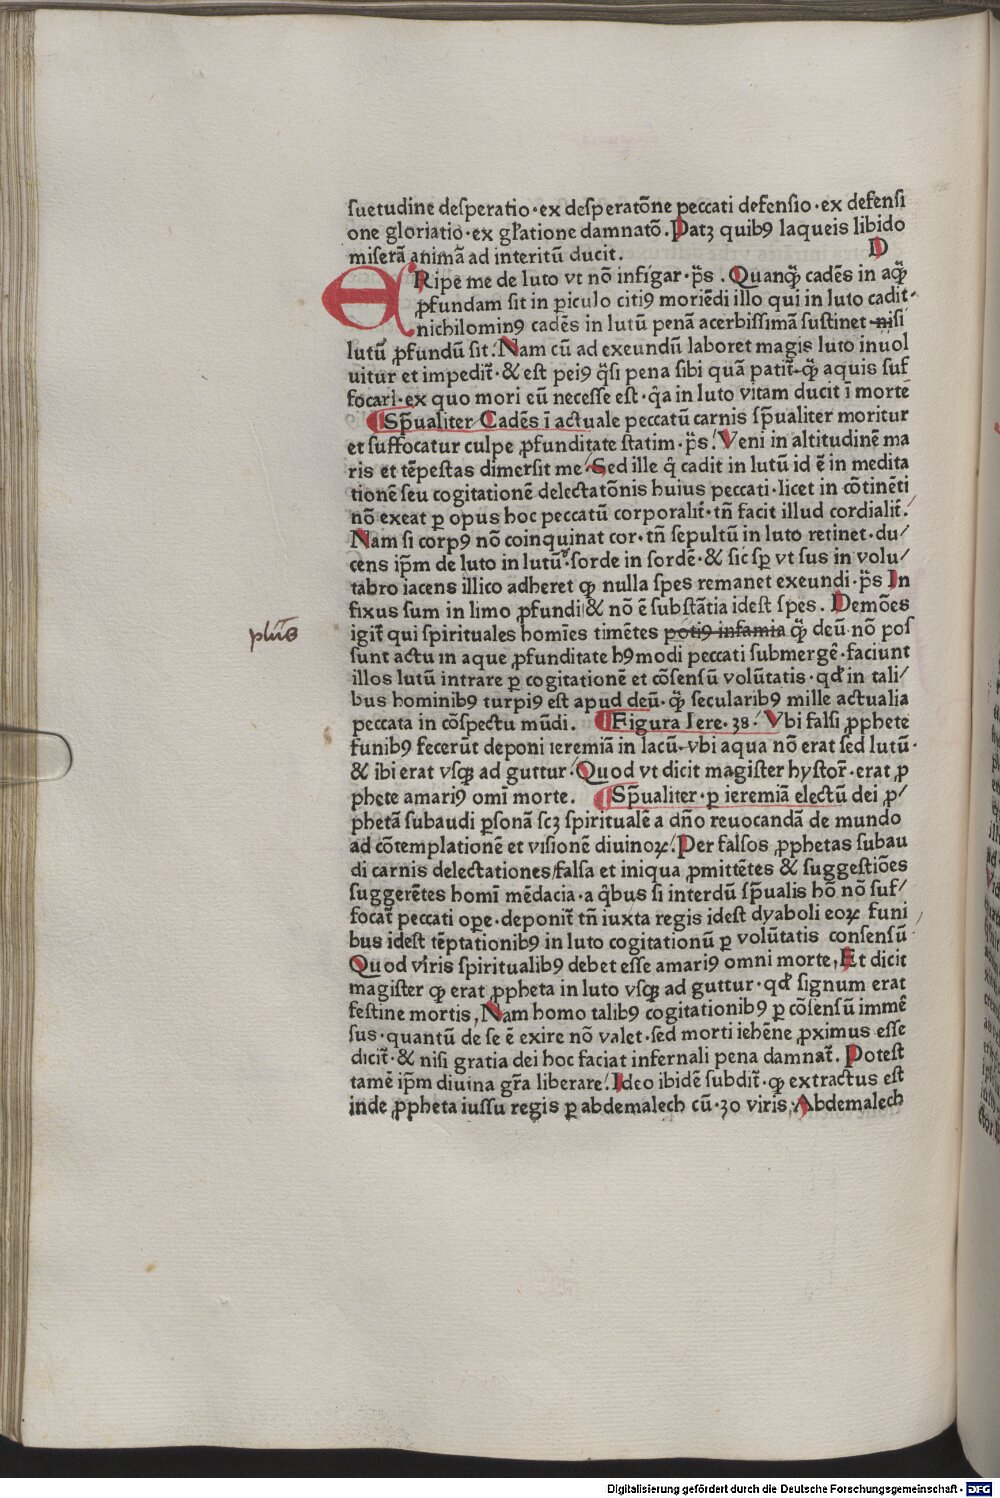 suetudine desperatio·ex desperatōne peccati defensio·ex defensi
one gloriatio·ex gl̄atione damnatō. Patꝫ quibꝰ laqueis libido
miserā animā ad interitū ducit. D
ERipe me de luto vt nō infigar·p̄s. Quanꝙ̄ cadēs in aꝗ̄
ꝓfundam sit in ꝑiculo citiꝰ moriēdi illo qui in luto cadit·
nichilominꝰ cadēs in lutū penā acerbissimā sustinet nisi
lutū ꝓfundū sit. Nam cū ad exeundū laboret magis luto inuol
uitur et impedit̄·& est peiꝰ q̄si pena sibi quā patit̄·ꝙ̄ aquis suf
focari·ex quo mori eū necesse est·q̄a in luto vitam ducit ī morte
¶ Sp̄ualiter Cadēs ī actuale peccatū carnis sp̄ualiter moritur
et suffocatur culpe ꝓfunditate statim·p̄s. Veni in altitudinē ma
ris et tēpestas dimersit me Sed ille q̄ cadit in lutū id ē in medita
tionē seu cogitationē delectatōnis huius peccati·licet in cōtinēti
nō exeat ꝑ opus hoc peccatū corporalit̄·tn̄ facit illud cordialit̄.
Nam si corpꝰ nō coinquinat cor·tn̄ sepultū in luto retinet·du/
cens ip̄m de luto in lutū·sorde in sordē·& sic sꝑ vt sus in volu/
tabro iacens illico adheret ꝙ nulla spes remanet exeundi·p̄s In
fixus sum in limo ꝓfundi & nō ē substātia idest spes. Demōes
igit̄ qui spirituales homīes timētes potiꝰ infamia ꝙ̄ deū nō pos
sunt actu in aque ꝓfunditate hꝰmodi peccati submergē·faciunt
illos lutū intrare ꝑ cogitationē et cōsensū volūtatis·qđ in tali/
bus hominibꝰ turpiꝰ est apud deū·ꝙ̄ secularibꝰ mille actualia
peccata in cōspectu mūdi. ¶ Figura Iere·38· Vbi falsi ꝓphete
funibꝰ fecerūt deponi ieremiā in lacū·vbi aqua nō erat sed lutū·
& ibi erat vsqꝫ ad guttur·Quod vt dicit magister hystor̄·erat ꝓ
phete amariꝰ omī morte. ¶ Sp̄ualiter·ꝑ ieremiā electū dei ꝓ/
phetā subaudi ꝑsonā scꝫ spiritualē a dn̄o reuocandā de mundo
ad cōtemplationē et visionē diuinoꝝ. Per falsos ꝓphetas subau
di carnis delectationes falsa et iniqua ꝓmittētes & suggestiōes
suggerētes homī mēdacia·a q̄bus si interdū sp̄ualis hō nō suf/
focat̄ peccati oꝑe·deponit̄ tn̄ iuxta regis idest dyaboli eoꝝ funi
bus idest tēptationibꝰ in luto cogitationū ꝑ volūtatis consensū
Quod viris spiritualibꝰ debet esse amariꝰ omni morte, Et dicit
magister ꝙ erat ꝓpheta in luto vsqꝫ ad guttur·qđ signum erat
festine mortis, Nam homo talibꝰ cogitationibꝰ ꝑ cōsensū immē
sus·quantū de se ē exire nō valet·sed morti iehēne ꝓximus esse
dicit̄·& nisi gratia dei hoc faciat infernali pena damnat̄. Potest
tamē ip̄m diuina gr̄a liberare. Ideo ibidē subdit̄·ꝙ extractus est
inde ꝓpheta iussu regis ꝑ abdemalech cū·30 viris·Abdemalech
Digitalisierung gefördert durch die Deutsche Forschungsgemeinschaft · DFG